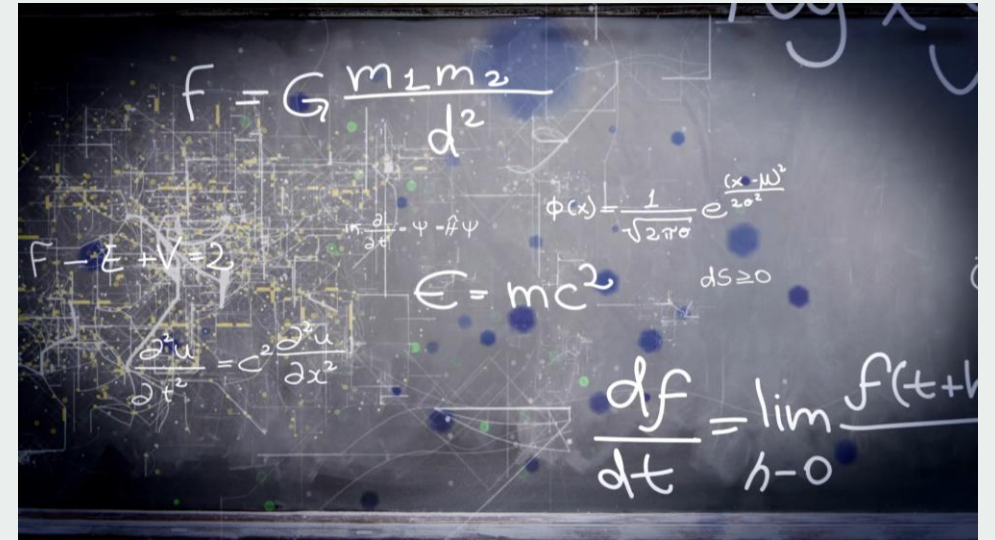 log x y
F = G m1m2 / d²
ϕ(x) = 1 / √2πσ e^(x-μ)² / 2σ²
∂ / ∂t Ψ = ĤΨ
F - E + V = 2
E = mc²
dS ≥ 0
∂²u / ∂t² = c² ∂²u / ∂x²
df / dt = lim h-0 f(t+h